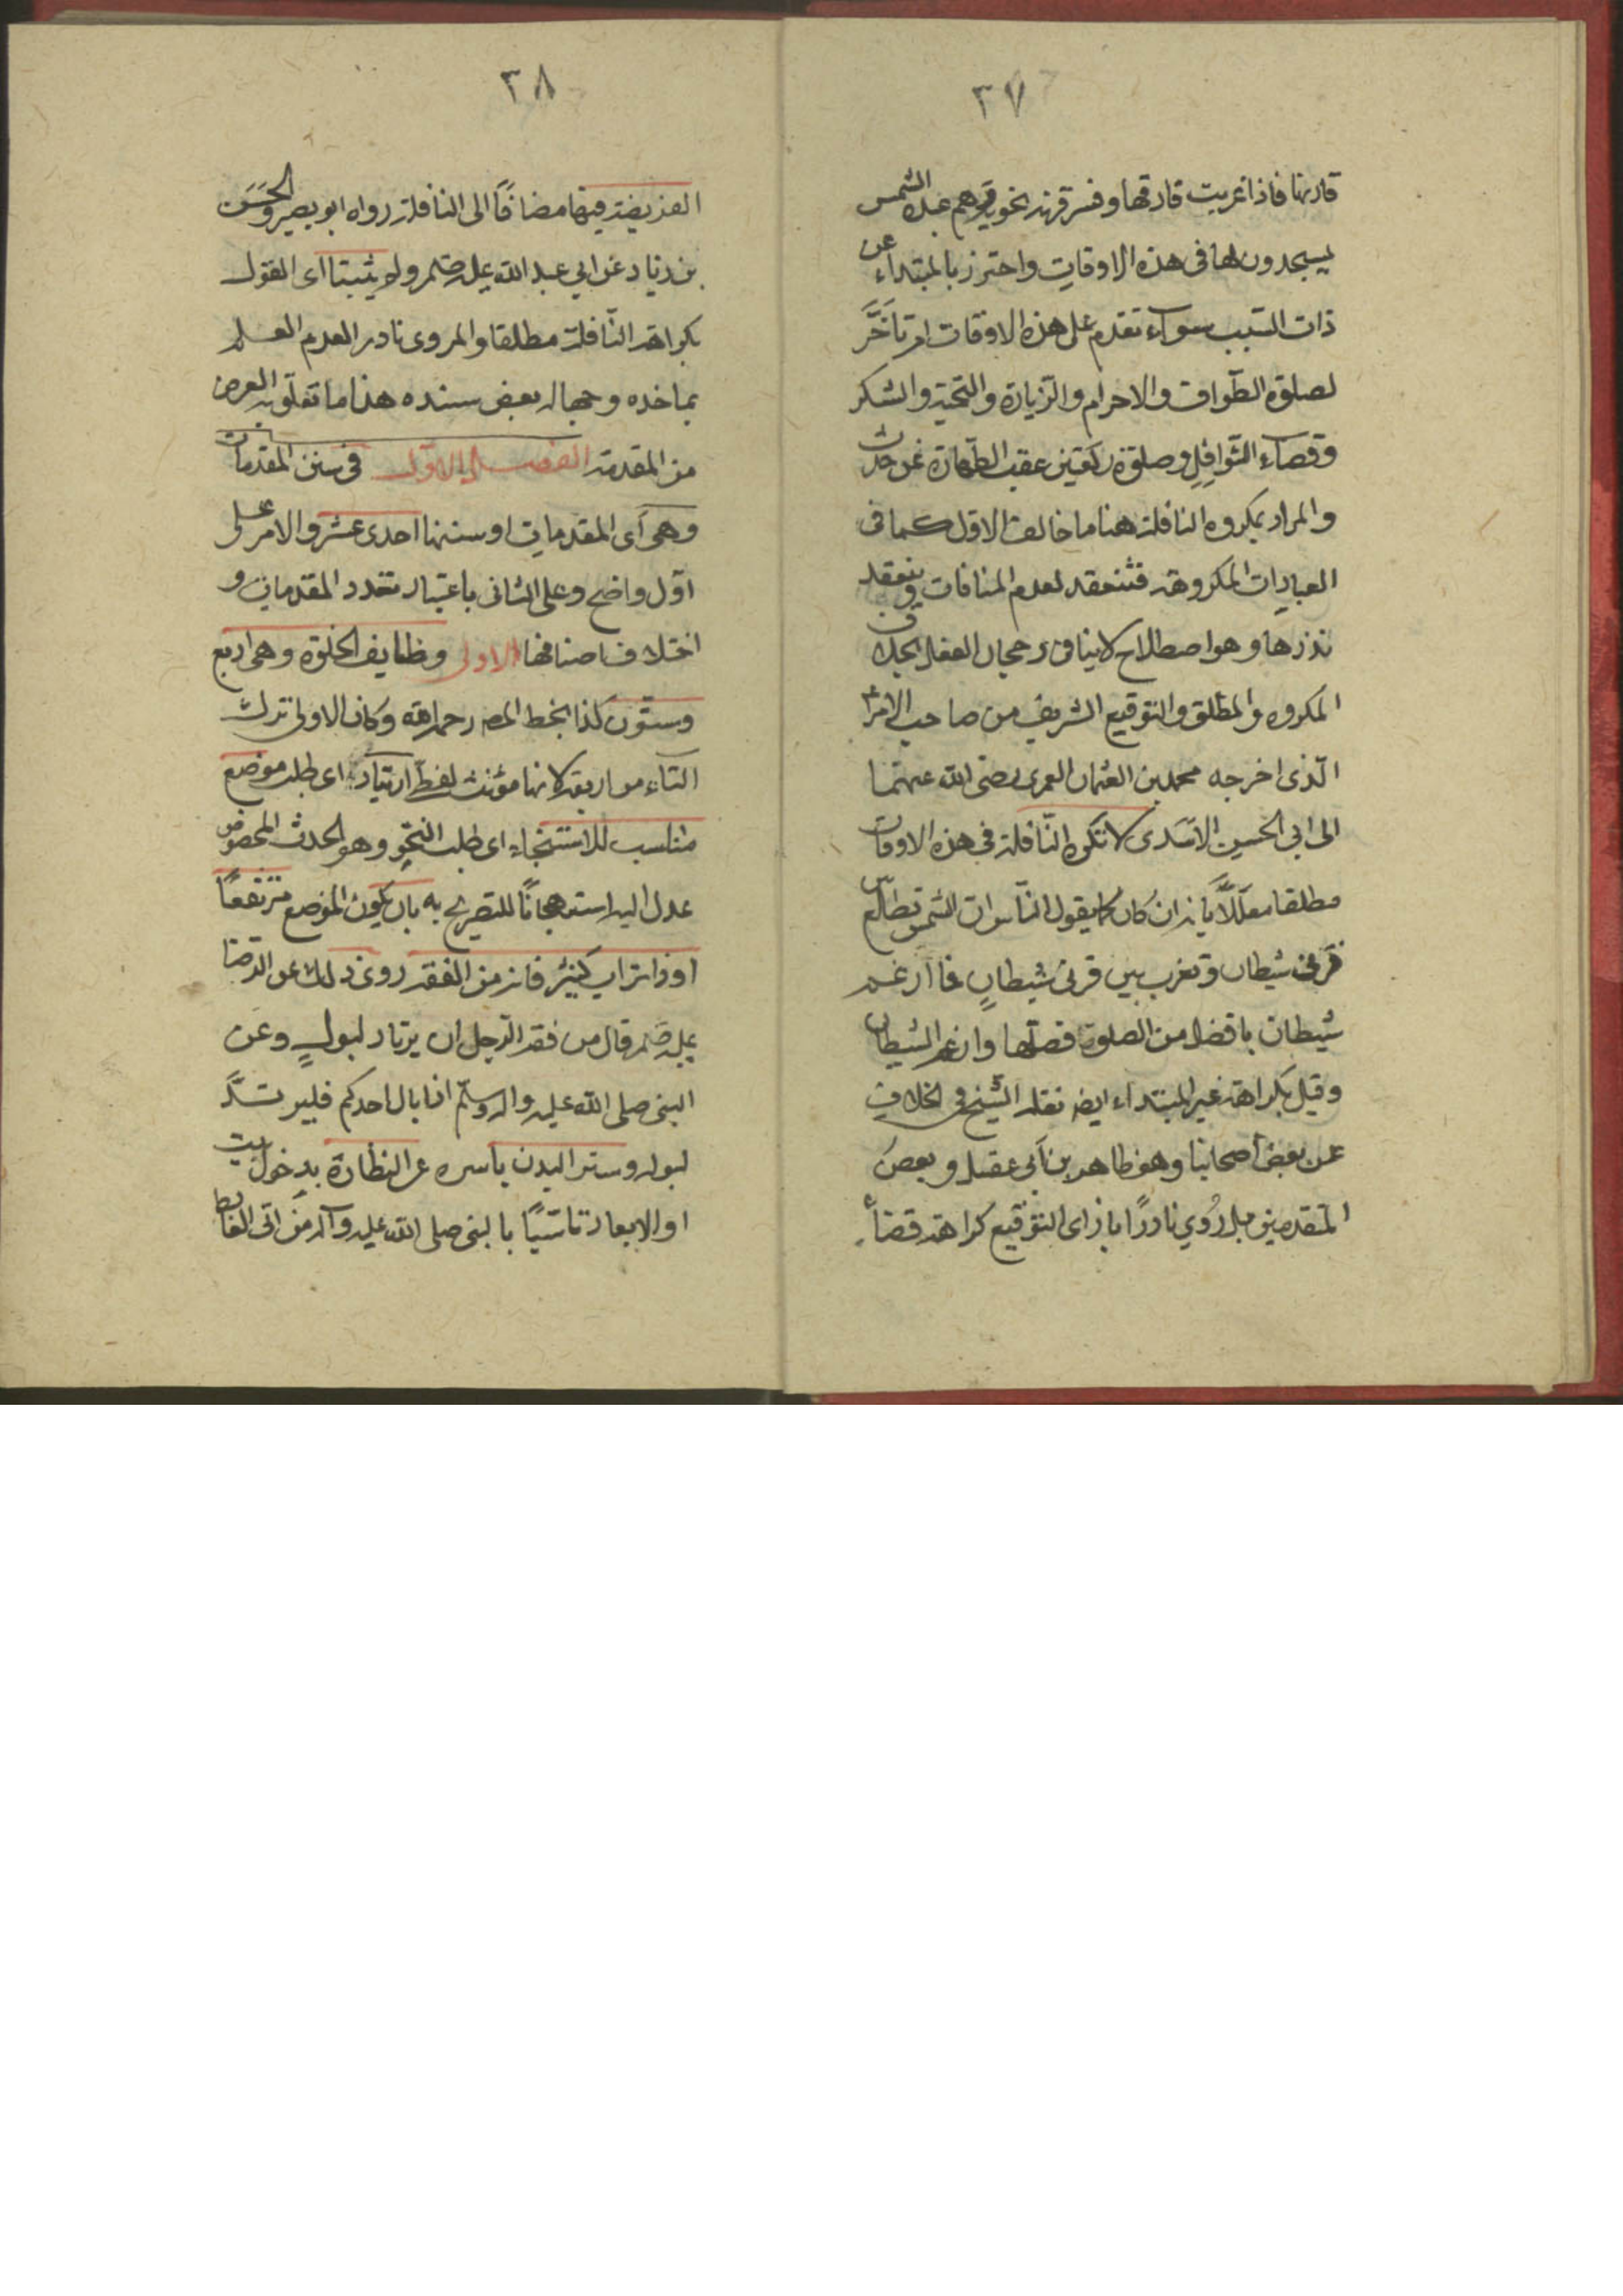 ٣٧
قارنها فاذا غربت فارقها وفسر قرنه بحزبه وهم عبدة الشمس
يسجدون لها فى هذه الاوقات واحترز بالمبتداء عن
ذات السبب سواء تقدم على هذه الاوقات ام تاخَّر
لصلوة الطواف والاحرام والزيارة والتحية والشكر
وقضاء النوافل وصلوة ركعتين عقب الطهارة عن حدث
والمراد بمكروه النافلة هنا ما خالف الاولى كما فى
العبادات المكروهة فتنعقد لعدم المنافات وينعقد
نذرها وهو اصطلاح لا ينافى رجحان الفعل بخلاف
المكروه المطلق والتوقيع الشريف من صاحب الامر
الذى اخرجه محمد بن العثمان العمرى رضى الله عنهما
الى ابى الحسين الاسدى لا تكره النافلة فى هذه الاوقات
مطلقا معللًا بانه ان كان كما يقول الناس ان الشمس تطلع بين
قرنى شيطان وتغرب بين قرنى شيطان فما ارغم
شيطان بافضل من الصلوة فصلها وارغم الشيطان
وقيل بكراهة غير المبتداء ايضه نقله الشيخ فى الخلاف
عن بعض اصحابنا وهو ظاهر بن ابى عقيل وبعض
المتقدمين بل رُوي نادرًا بازاى التوقيع كراهة قضاء
٣٨
الفريضة فيها مضافًا الى النافلة رواه ابو بصير والحسن
بن زياد عن ابي عبد الله عليه صلم ولم يثبتا اى القول
بكراهة النافلة مطلقا والمروى نادر العدم العلم
بماخذه وجهالة بعض سنده هذا ما تعلق به الغرض
من المقدمة الفصل الاول فى سنن المقدمات
وهى اى المقدمات او سننها احدى عشر والامر على
اول واضح وعلى الثانى باعتبار تعدد المقدمات و
اختلاف اصنافها الاولى وظايف الخلوة وهى اربع
وستون كذا بخط المصه رحمه الله وكان الاولى ترك
التاء من اربعة لانها مؤنث لفظ ارتياد اى طلب موضع
مناسب للاستنجاء اى طلب النجو وهو الحدث المخصوص
عدل اليه استهجانًا للتصريح به بان يكون الموضع مرتفعًا
او ذا تراب كثير فانه من الفقه روى ذلك عن الرضا
عليه صلم قال من فقه الرجل ان يرتاد لبوله وعن
النبى صلى الله عليه واله وسلم اذا بال احدكم فليرتد
لبوله وستر البدن باسره عن النظارة بدخول بيت
او الابعاد تاسّيًا بالنبى صلى الله عليه وآله من اتى الغائط